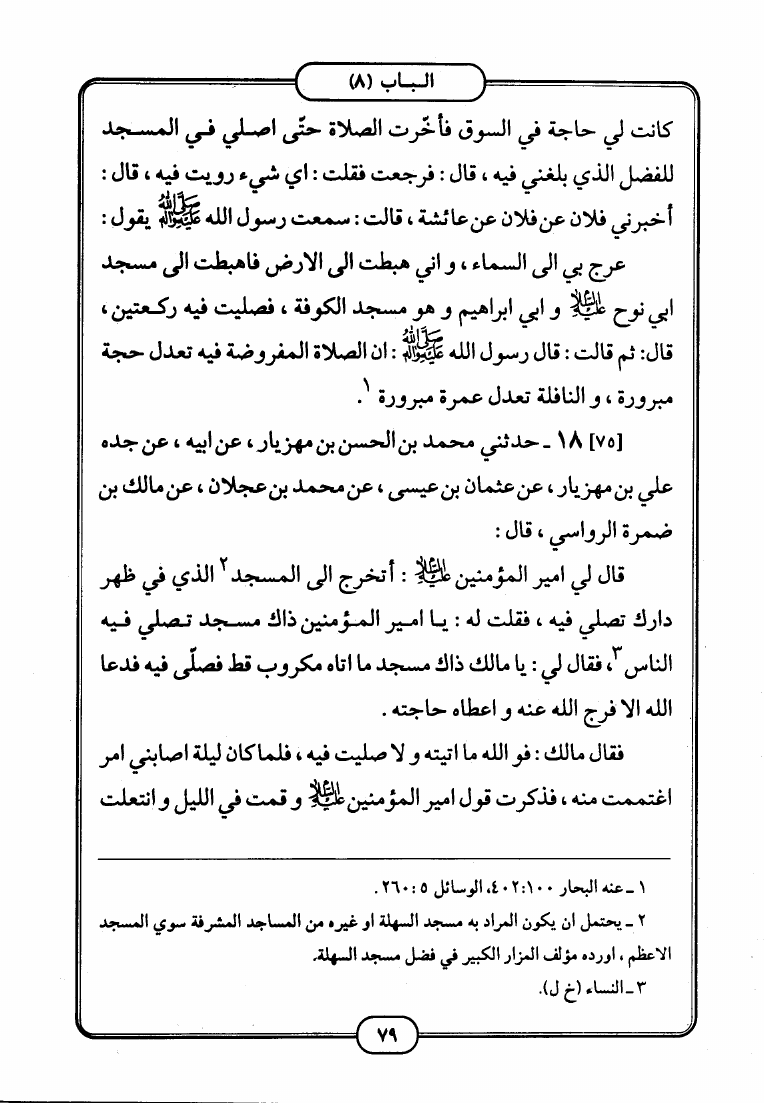 الباب (٨)
كانت لي حاجة في السوق فأخّرت الصلاة حتّى اصلي في المسجد
للفضل الذي بلغني فيه ، قال : فرجعت فقلت : اي شيء رويت فيه ، قال :
أخبرني فلان عن فلان عن عائشة ، قالت : سمعت رسول الله ﷺ يقول :
عرج بي الى السماء ، و اني هبطت الى الارض فاهبطت الى مسجد
ابي نوح عليه السلام و ابي ابراهيم و هو مسجد الكوفة ، فصليت فيه ركعتين ،
قال: ثم قالت : قال رسول الله ﷺ : ان الصلاة المفروضة فيه تعدل حجة
مبرورة ، و النافلة تعدل عمرة مبرورة ١.
[٧٥] ١٨ ـ حدثني محمد بن الحسن بن مهزيار ، عن ابيه ، عن جده
علي بن مهزيار ، عن عثمان بن عيسى ، عن محمد بن عجلان ، عن مالك بن
ضمرة الرواسي ، قال :
قال لي امير المؤمنين عليه السلام : أتخرج الى المسجد٢ الذي في ظهر
دارك تصلي فيه ، فقلت له : يا امير المؤمنين ذاك مسجد تصلي فيه
الناس٣، فقال لي : يا مالك ذاك مسجد ما اتاه مكروب قط فصلّى فيه فدعا
الله الا فرج الله عنه و اعطاه حاجته .
فقال مالك : فو الله ما اتيته و لا صليت فيه ، فلما كان ليلة اصابني امر
اغتممت منه ، فذكرت قول امير المؤمنين عليه السلام و قمت في الليل و انتعلت
١ ـ عنه البحار ١٠٠:٤٠٢، الوسائل ٥ : ٢٦٠ .
٢ ـ يحتمل ان يكون المراد به مسجد السهلة او غيره من المساجد المشرفة سوي المسجد
الاعظم ، اورده مؤلف المزار الكبير في فضل مسجد السهلة.
٣ ـ النساء (خ ل).
٧٩